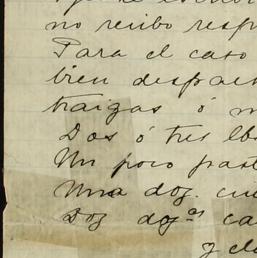 no recibo resp
Para el caso
bien despac
traigas ó m
Dos ó tres lb
Un poco past
Una doz. cu
Doz dozas ca
y de